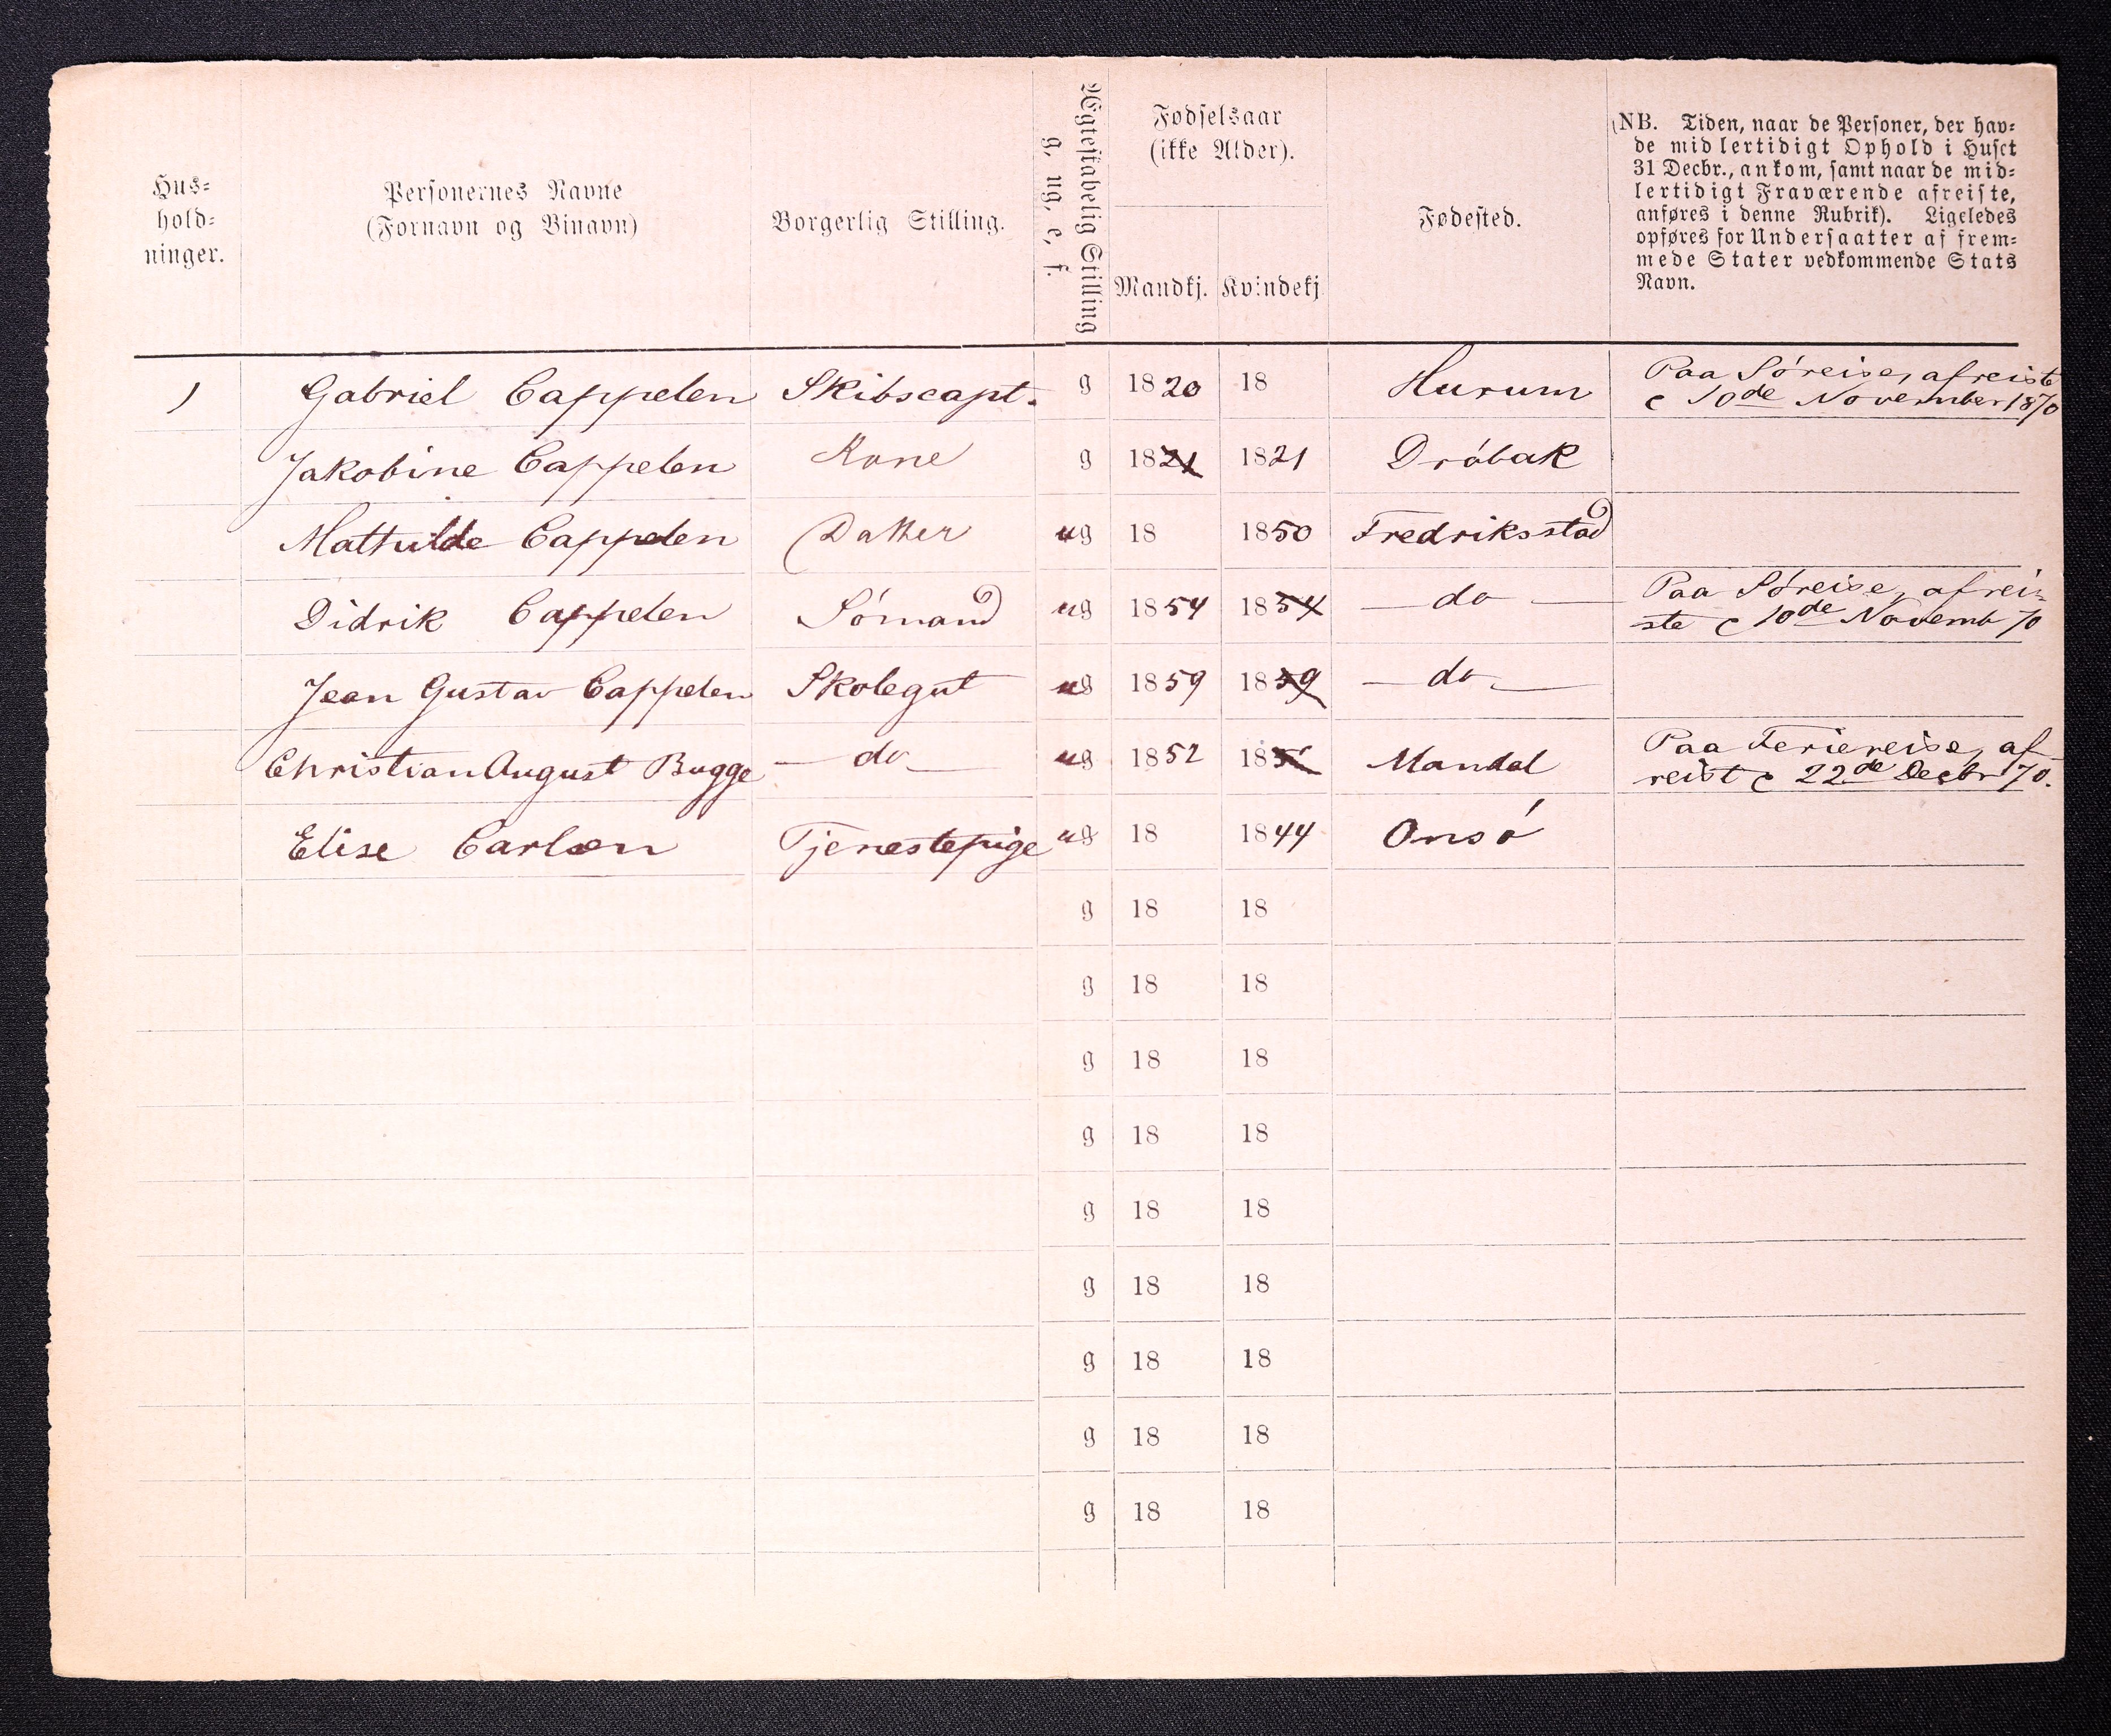 Hus-
hold-
ninger.
Personernes Navne
(Fornavn og Binavn)
Borgerlig Stilling.
Ægteskabelig Stilling
g, ug, e, f.
Fødselsaar
(ikke Alder).
Mandkj. Kvindekj
Fødested.
(NB. Tiden, naar de Personer, der hav-
de midlertidigt Ophold i Huset
31 Decbr., ankom, samt naar de mid-
lertidigt Fraværende afreiste,
anføres i denne Rubrik). Ligeledes
opføres for Undersaatter af frem-
mede Stater vedkommende Stats
Navn.
1 Gabriel Cappelen Skibscapt. g 1820 18 Hurum Paa Søreise, afreiste
c 10de November 1870
Jakobine Cappelen Kone g 1821 1821 Dröbak
Mathilde Cappelen Datter ug 18 1850 Fredriksstad
Didrik Cappelen Sömand ug 1854 1854 — do — Paa Søreise, afrei-
ste c 10de Novemb 70
Jean Gustav Cappelen Skolegut ug 1859 1859 — do —
Christian August Bugge — do — ug 1852 185 Mandal Paa Feriereise, af
reist c 22de Decbr 70.
Elise Carlsen Tjenestepige ug 18 1844 Onsö
g 18 18
g 18 18
g 18 18
g 18 18
g 18 18
g 18 18
g 18 18
g 18 18
g 18 18